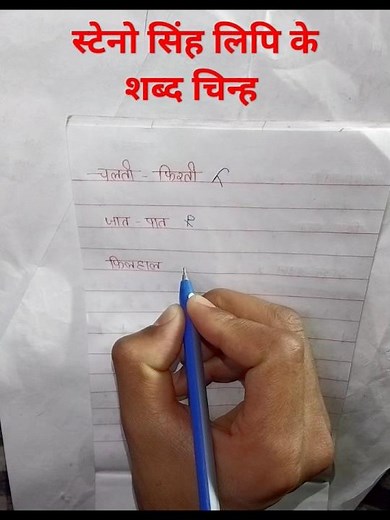 स्टेनो सिंह लिपि के
शब्द चिन्ह
चलती - फिरती
जात - पात
फिलहाल